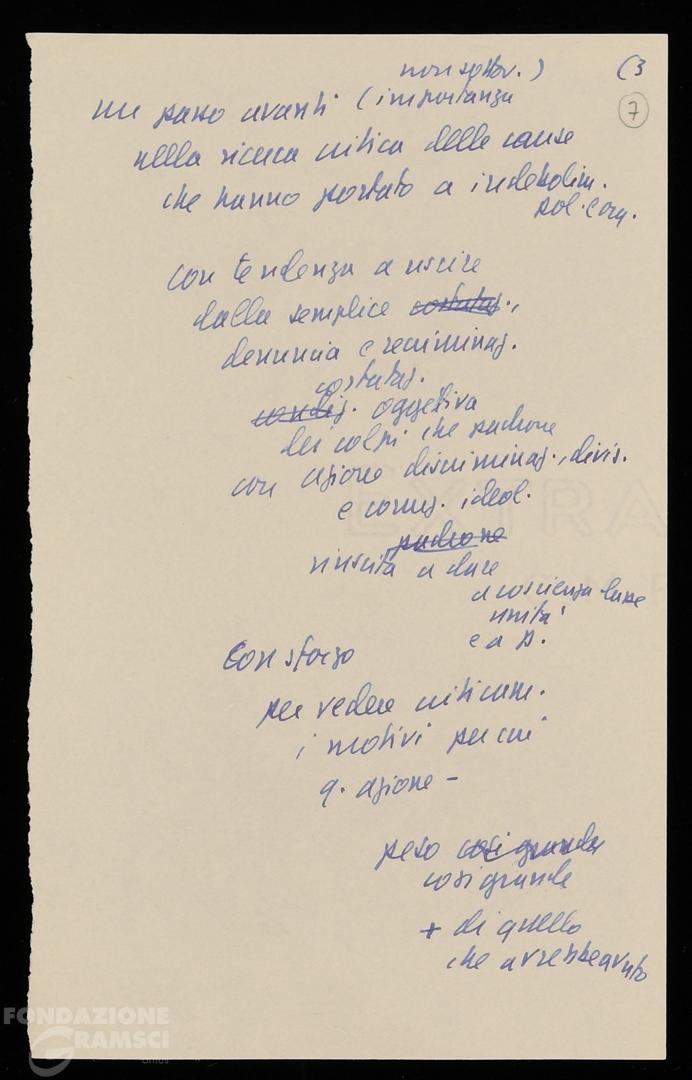 non sottov.) (3
un passo avanti (importanza
7
nella ricerca critica delle cause
che hanno portato a indebolim.
pol. com.
con tendenza a uscire
dalla semplice costataz.,
denuncia e recriminaz.
costataz.
condiz. oggettiva
dei colpi che padrone
con azione discriminaz., divis.
e corruz. ideol.
padrone
riuscita a dare
a coscienza classe
unità
e a p.
Con sforzo
per vedere criticam.
i motivi per cui
q. azione -
peso così grande
così grande
+ di quello
che avrebbe avuto
EXTRA
FONDAZIONE
GRAMSCI